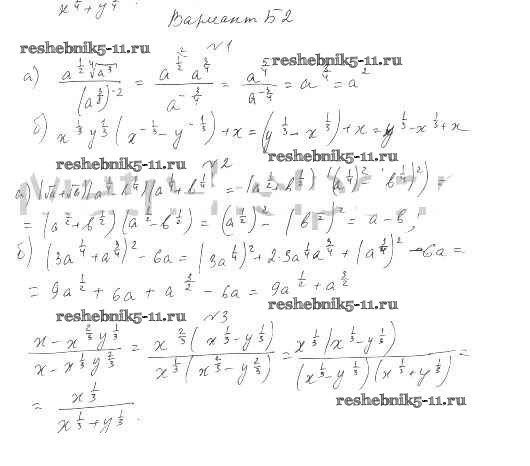 x^{1/4} + y^{1/4}.
Вариант Б2
reshebnik5-11.ru
№1
а) \frac{a^{1/2} \sqrt[4]{a^3}}{(a^{3/8})^{-2}} = \frac{a^{1/2} a^{3/4}}{a^{-3/4}} = \frac{a^{5/4}}{a^{-3/4}} = a^{8/4} = a^2
б) x^{1/3} y^{1/3} (x^{-1/3} - y^{-1/3}) + x = (y^{1/3} - x^{1/3}) + x = y^{1/3} - x^{1/3} + x
reshebnik5-11.ru №2 reshebnik5-11.ru
а) (√a + √b)(a^{1/4} - b^{1/4})(a^{1/4} + b^{1/4}) = (a^{1/2} + b^{1/2}) ((a^{1/4})^2 - (b^{1/4})^2) =
= (a^{1/2} + b^{1/2})(a^{1/2} - b^{1/2}) = (a^{1/2})^2 - (b^{1/2})^2 = a - b,
б) (3a^{1/4} + a^{3/4})^2 - 6a = (3a^{1/4})^2 + 2·3a^{1/4}a^{3/4} + (a^{3/4})^2 - 6a =
= 9a^{1/2} + 6a + a^{3/2} - 6a = 9a^{1/2} + a^{3/2}
reshebnik5-11.ru №3 reshebnik5-11.ru
\frac{x - x^{2/3} y^{1/3}}{x - x^{1/3} y^{2/3}} = \frac{x^{2/3} (x^{1/3} - y^{1/3})}{x^{1/3} (x^{2/3} - y^{2/3})} = \frac{x^{1/3} (x^{1/3} - y^{1/3})}{(x^{1/3} - y^{1/3})(x^{1/3} + y^{1/3})} =
= \frac{x^{1/3}}{x^{1/3} + y^{1/3}}.
reshebnik5-11.ru